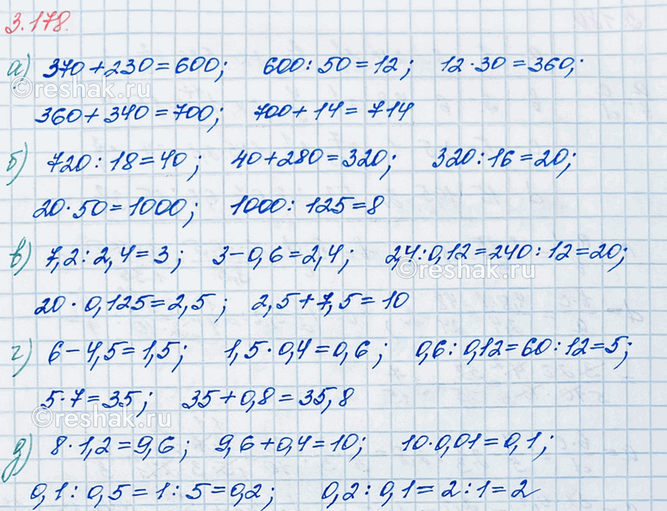 3.178.
а) 370+230=600; 600:50=12; 12·30=360;
360+340=700; 700+14=714
б) 720:18=40; 40+280=320; 320:16=20;
20·50=1000; 1000:125=8
в) 7,2:2,4=3; 3-0,6=2,4; 2,4:0,12=240:12=20;
20·0,125=2,5; 2,5+7,5=10
г) 6-4,5=1,5; 1,5·0,4=0,6; 0,6:0,12=60:12=5;
5·7=35; 35+0,8=35,8
д) 8·1,2=9,6; 9,6+0,4=10; 10·0,01=0,1;
0,1:0,5=1:5=0,2; 0,2:0,1=2:1=2
©reshak.ru
©reshak.ru
©reshak.ru
©reshak.ru
©reshak.ru